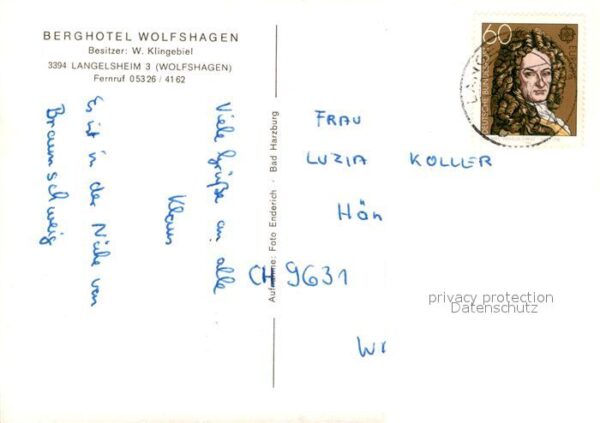 BERGHOTEL WOLFSHAGEN
Besitzer: W. Klingebiel
3394 LANGELSHEIM 3 (WOLFSHAGEN)
Fernruf 05326 / 4162
Viele Grüße an alle
Klaus
Es ist in der Nähe von
Braunschweig
Aufnahme: Foto Enderich · Bad Harzburg
60
EUROPA
DEUTSCHE BUNDESPOST
FRAU
LUZIA KOLLER
Hön
CH 9631
privacy protection
Datenschutz